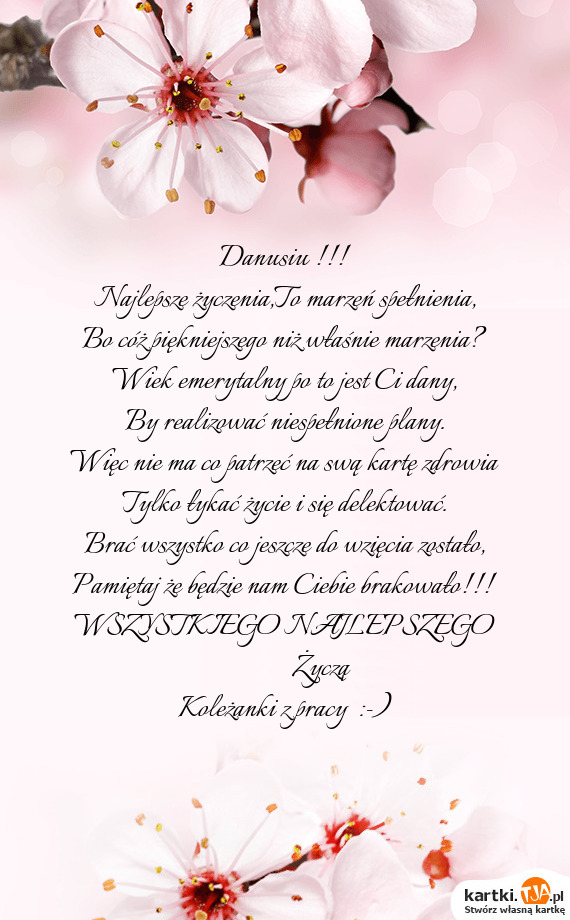 Danusiu !!!
Najlepsze życzenia,To marzeń spełnienia,
Bo cóż piękniejszego niż właśnie marzenia?
Wiek emerytalny po to jest Ci dany,
By realizować niespełnione plany.
Więc nie ma co patrzeć na swą kartę zdrowia
Tylko łykać życie i się delektować.
Brać wszystko co jeszcze do wzięcia zostało,
Pamiętaj że będzie nam Ciebie brakowało!!!
WSZYSTKIEGO NAJLEPSZEGO
Życzą
Koleżanki z pracy :-)
kartki.TJA.pl
Stwórz własną kartkę